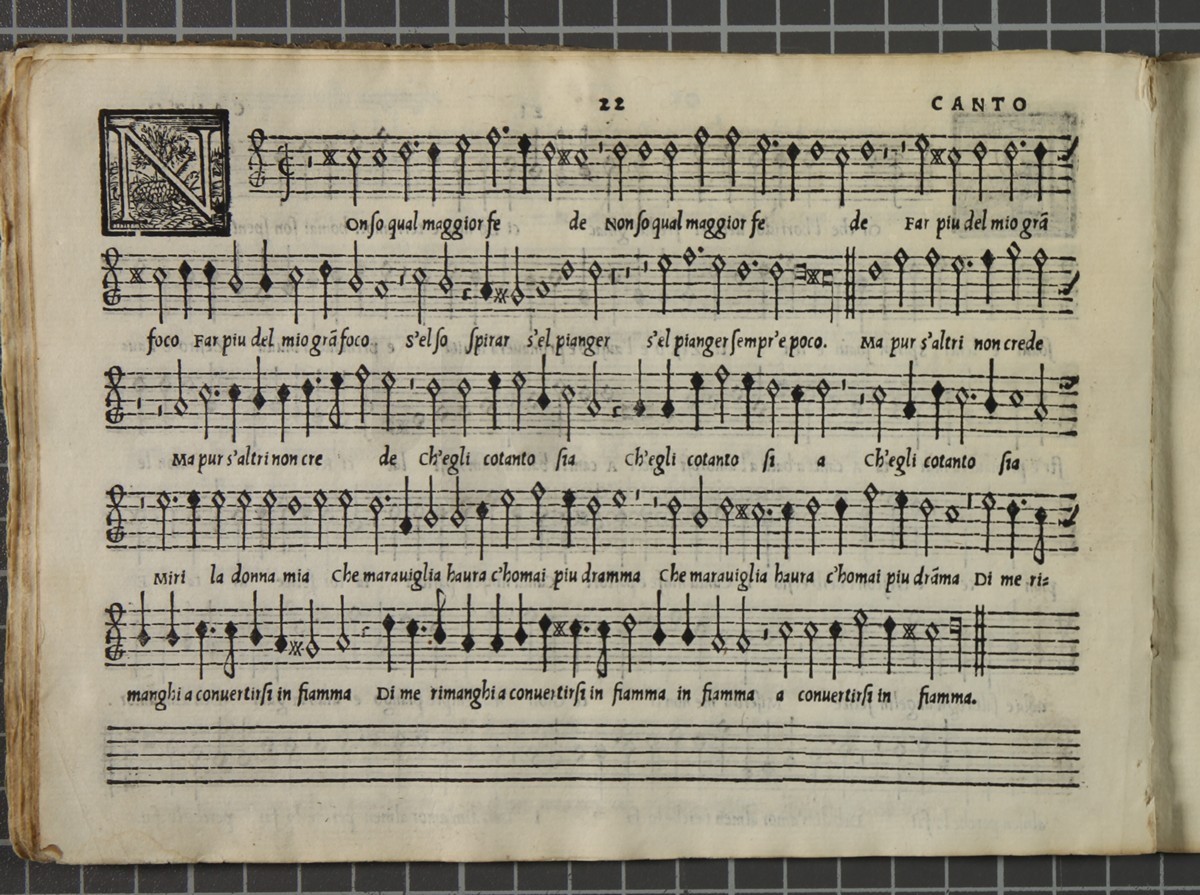 22 CANTO
NOn so qual maggior fe de Non so qual maggior fe de Far piu del mio grā
foco Far piu del mio grā foco s'el so spirar s'el pianger s'el pianger sempr'e poco. Ma pur s'altri non crede
Ma pur s'altri non cre de Ch'egli cotanto sia Ch'egli cotanto si a Ch'egli cotanto sia
Miri la donna mia Che marauiglia haura c'homai piu dramma Che marauiglia haura c'homai piu drāma Di me ri=
manghi a conuertirsi in fiamma Di me rimanghi a conuertirsi in fiamma in fiamma a conuertirsi in fiamma.